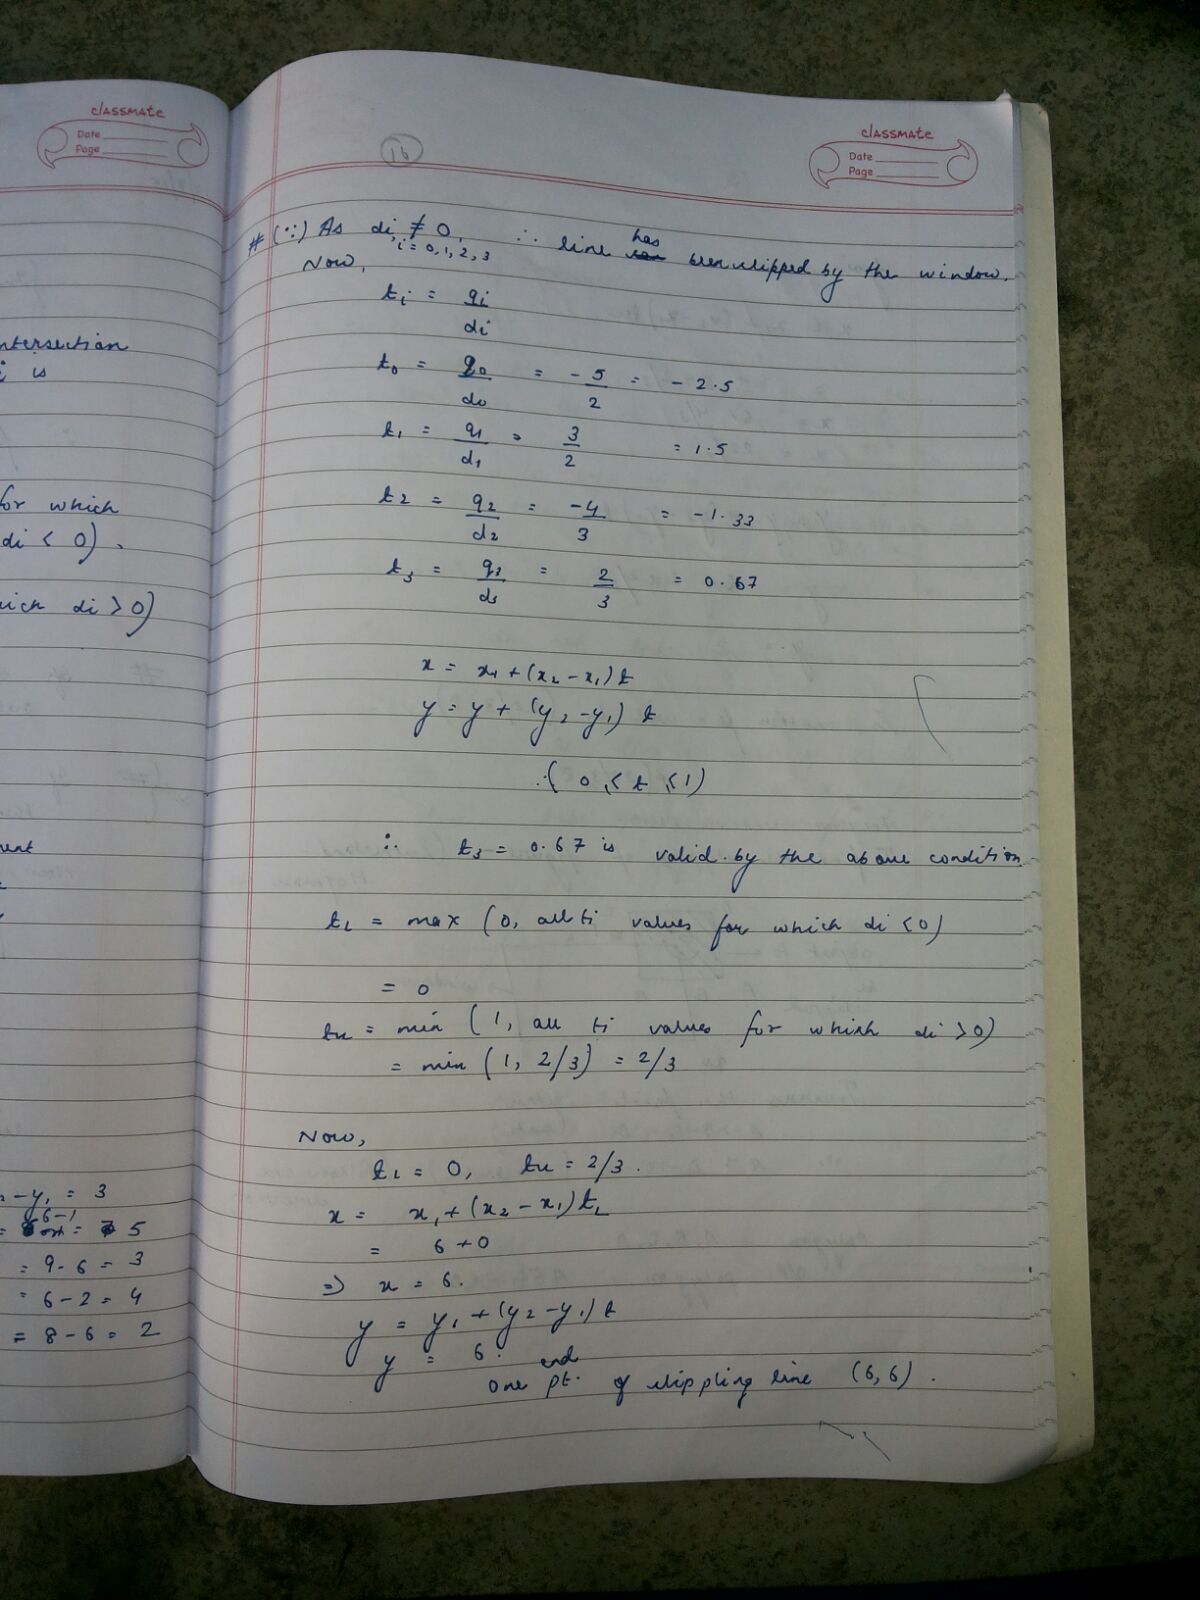 classmate
Date
Page
ntersection
is
for which
di < 0).
hich di > 0)
ent
- y₁ = 3
6-1
= 5
= 9-6 = 3
= 6-2 = 4
= 8-6 = 2
classmate
Date
Page
16
# (∵) As di ≠ 0, ∴ line has been clipped by the window.
i = 0, 1, 2, 3
Now,
ti = qi/di
t₀ = q₀/d₀ = -5/2 = -2.5
t₁ = q₁/d₁ = 3/2 = 1.5
t₂ = q₂/d₂ = -4/3 = -1.33
t₃ = q₃/d₃ = 2/3 = 0.67
x = x₁ + (x₂ - x₁) t
y = y + (y₂ - y₁) t
∴ (0 ≤ t ≤ 1)
∴ t₃ = 0.67 is valid by the above condition
tL = max (0, all ti values for which di < 0)
= 0
tu = min (1, all ti values for which di > 0)
= min (1, 2/3) = 2/3
Now,
tL = 0, tu = 2/3.
x = x₁ + (x₂ - x₁) tL
= 6 + 0
⇒ x = 6.
y = y₁ + (y₂ - y₁) t
y = 6.
One end pt. of clippling line (6,6).